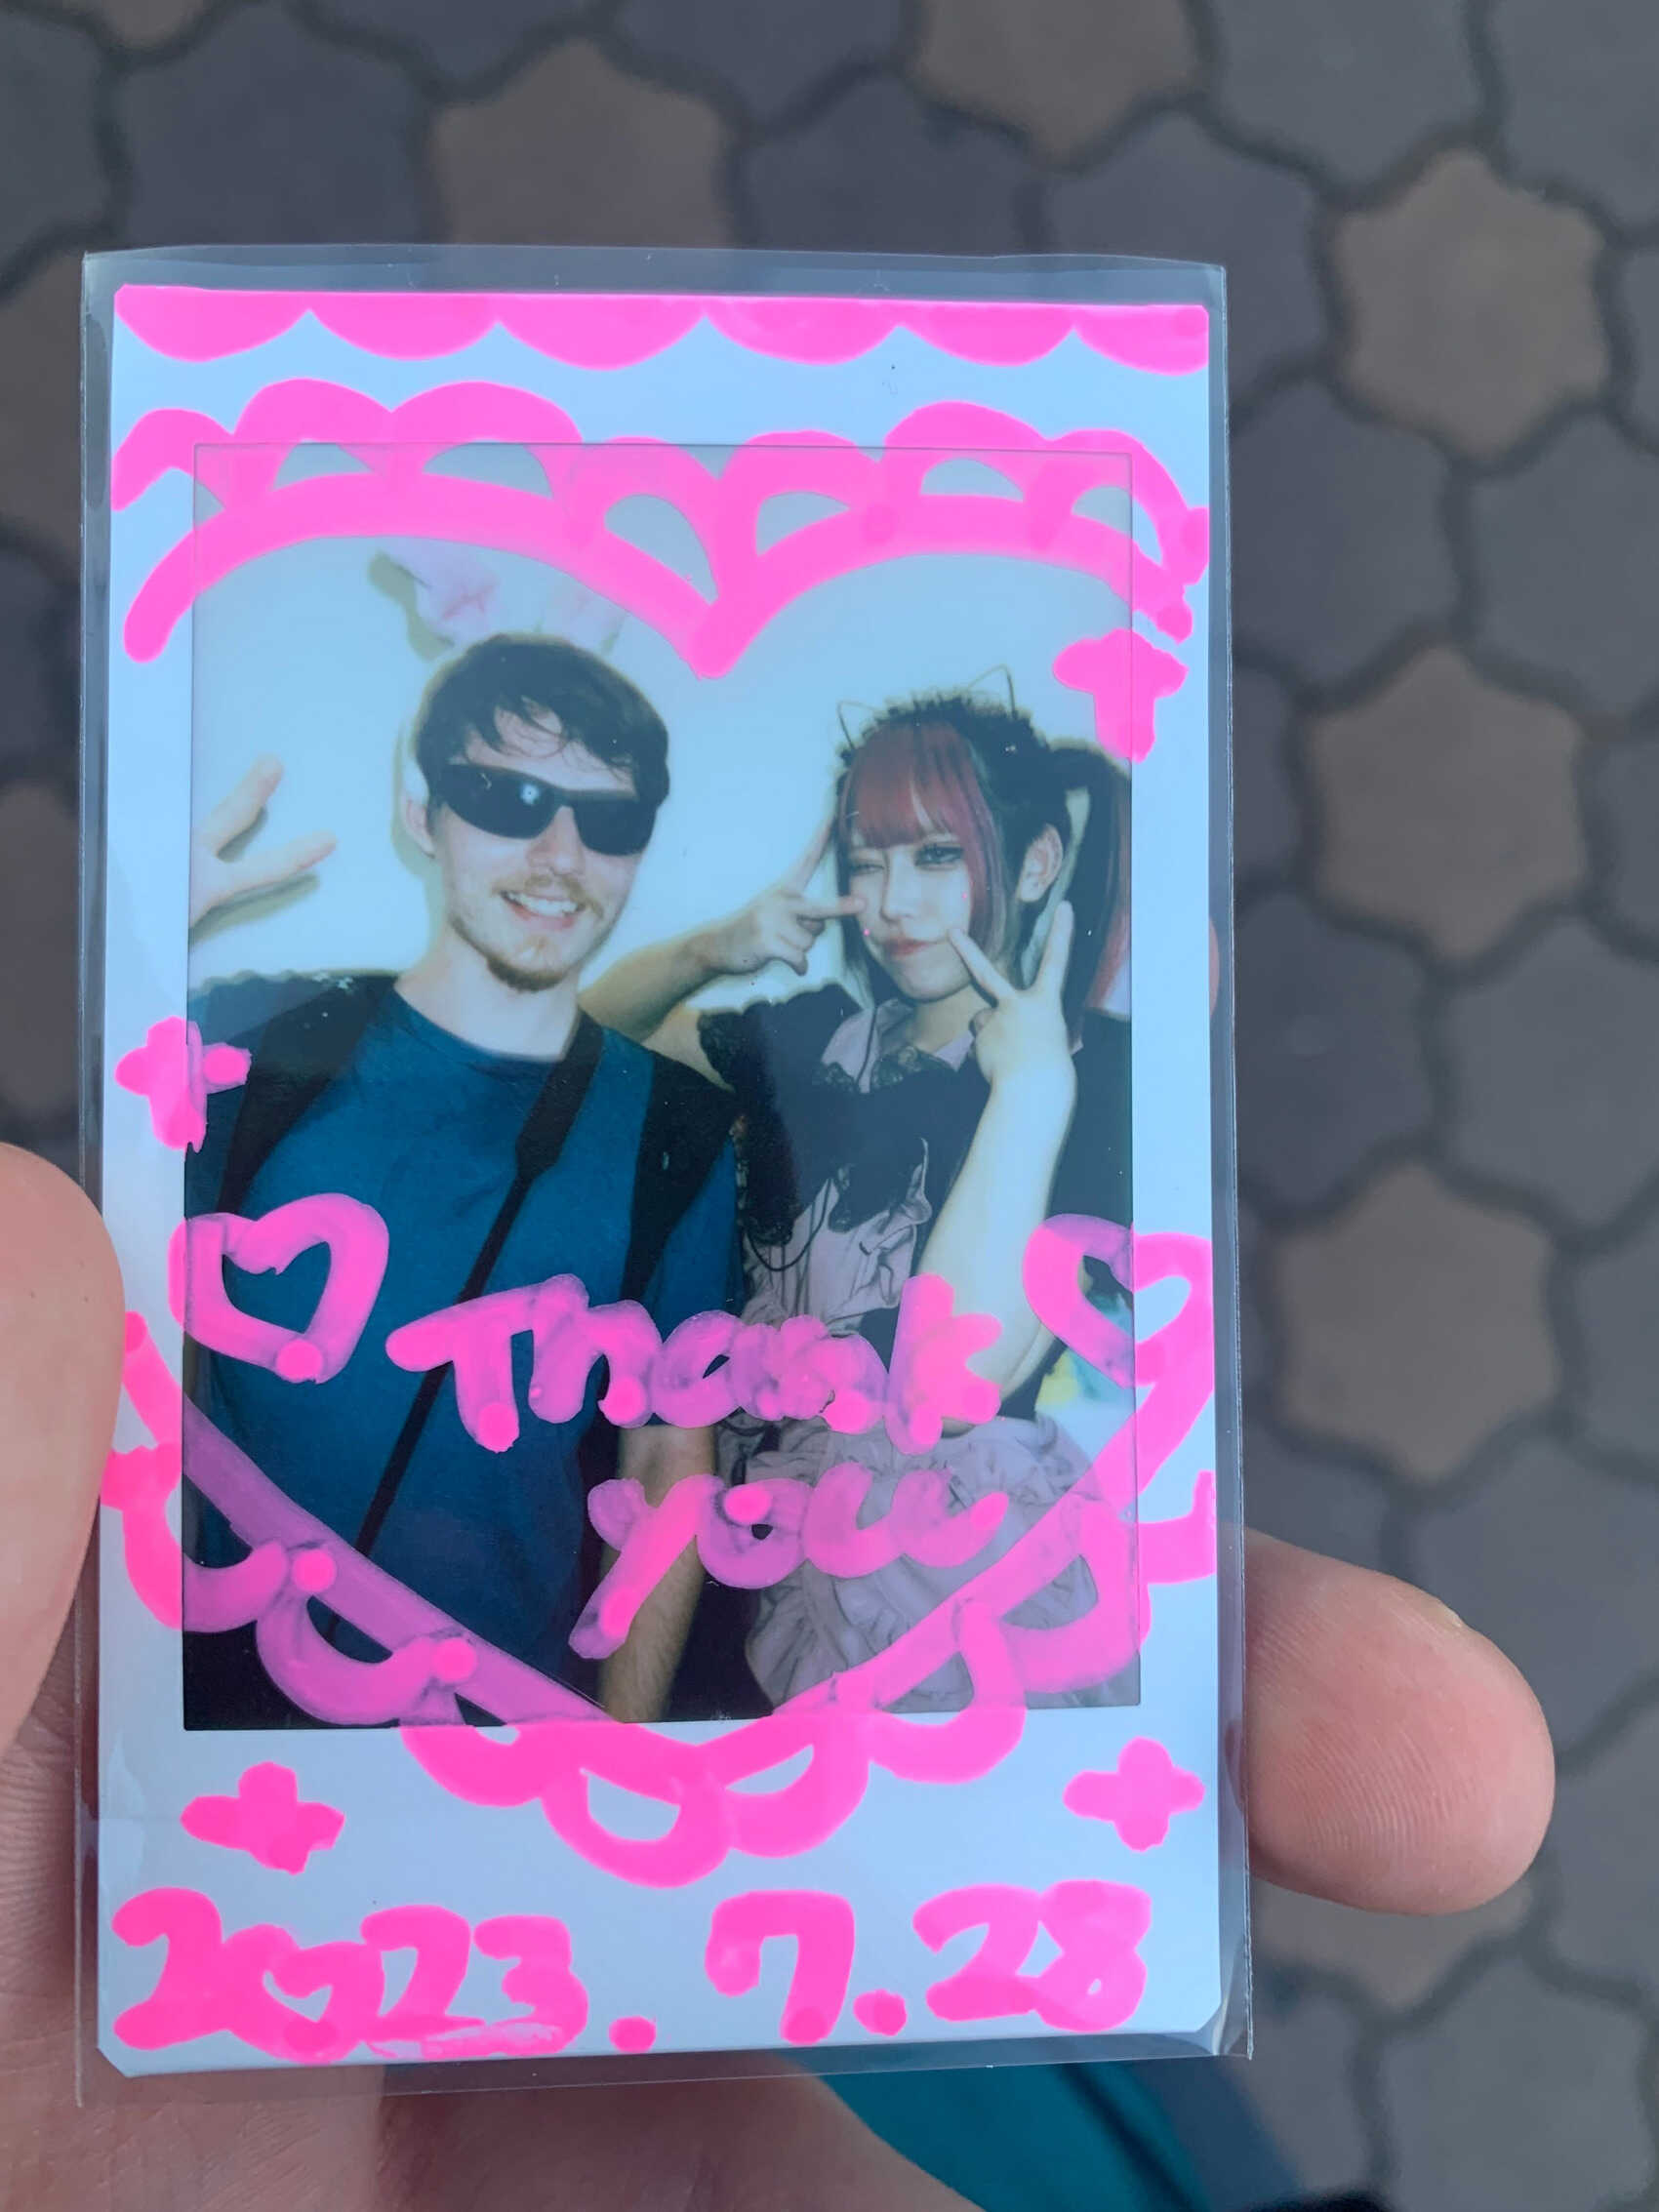 Thank
you
2023. 7.28